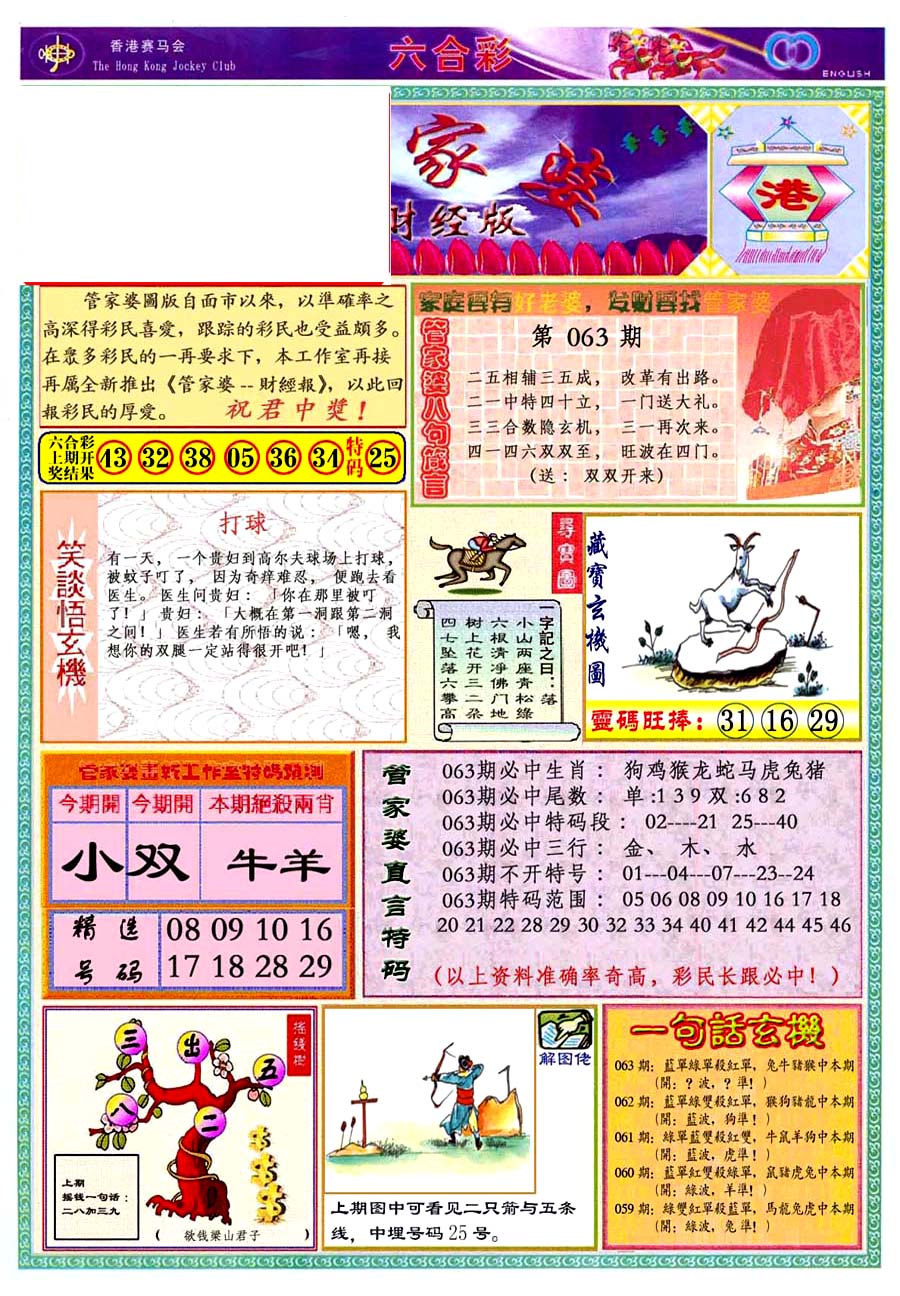 香港赛马会
The Hong Kong Jockey Club
六合彩
ENGLISH
家婆
财经版
港
管家婆圖版自面市以來，以準確率之
高深得彩民喜愛，跟踪的彩民也受益頗多。
在眾多彩民的一再要求下，本工作室再接
再厲全新推出《管家婆--財經報》，以此回
報彩民的厚愛。 祝君中獎！
六合彩
上期开
奖结果
13 32 38 05 36 34 特码 25
家庭要有好老婆，发财要找管家婆
管家婆八句箴言
第 063 期
二五相辅三五成， 改革有出路。
二一中特四十立， 一门送大礼。
三三合数隐玄机， 三一再次来。
四一四六双双至， 旺波在四门。
(送：双双开来)
笑談悟玄機
打球
有一天， 一个贵妇到高尔夫球场上打球，
被蚊子叮了， 因为奇痒难忍， 便跑去看
医生。 医生问贵妇：「你在那里被叮
了！」 贵妇：「大概在第一洞跟第二洞
之间！」 医生若有所悟的说：「嗯， 我
想你的双腿一定站得很开吧！」
尋寶圖
一字記之曰：落
小山两座青松綠
六根清凈佛门地
树上花开三二朵
四七坠落六攀高
藏寶玄機圖
靈碼旺捧：31 16 29
管家婆畫新工作室特碼預測
今期開 今期開 本期絕殺兩肖
小 双 牛羊
精选号码
08 09 10 16
17 18 28 29
管家婆直言特码
063期必中生肖： 狗鸡猴龙蛇马虎兔猪
063期必中尾数： 单:1 3 9 双:6 8 2
063期必中特码段： 02----21 25---40
063期必中三行： 金、 木、 水
063期不开特号： 01---04---07---23--24
063期特码范围： 05 06 08 09 10 16 17 18
20 21 22 28 29 30 32 33 34 40 41 42 44 45 46
(以上资料准确率奇高，彩民长跟必中！)
摇錢樹
三
出
五
八
二
上期
摇钱一句话：
二八加三九
( 欲钱梁山君子 )
解图佬
上期图中可看见二只箭与五条
线，中埋号码 25 号。
一句話玄機
063 期：藍單綠單殺紅單，兔牛豬猴中本期
(開：？波，？準！)
062 期：藍單綠雙殺紅單，猴狗豬龍中本期
(開：藍波，狗準！)
061 期：綠單藍雙殺紅雙，牛鼠羊狗中本期
(開：藍波，虎準！)
060 期：藍單紅雙殺綠單，鼠豬虎兔中本期
(開：綠波，羊準！)
059 期：綠雙紅單殺藍單，馬龍兔虎中本期
(開：綠波，兔準！)